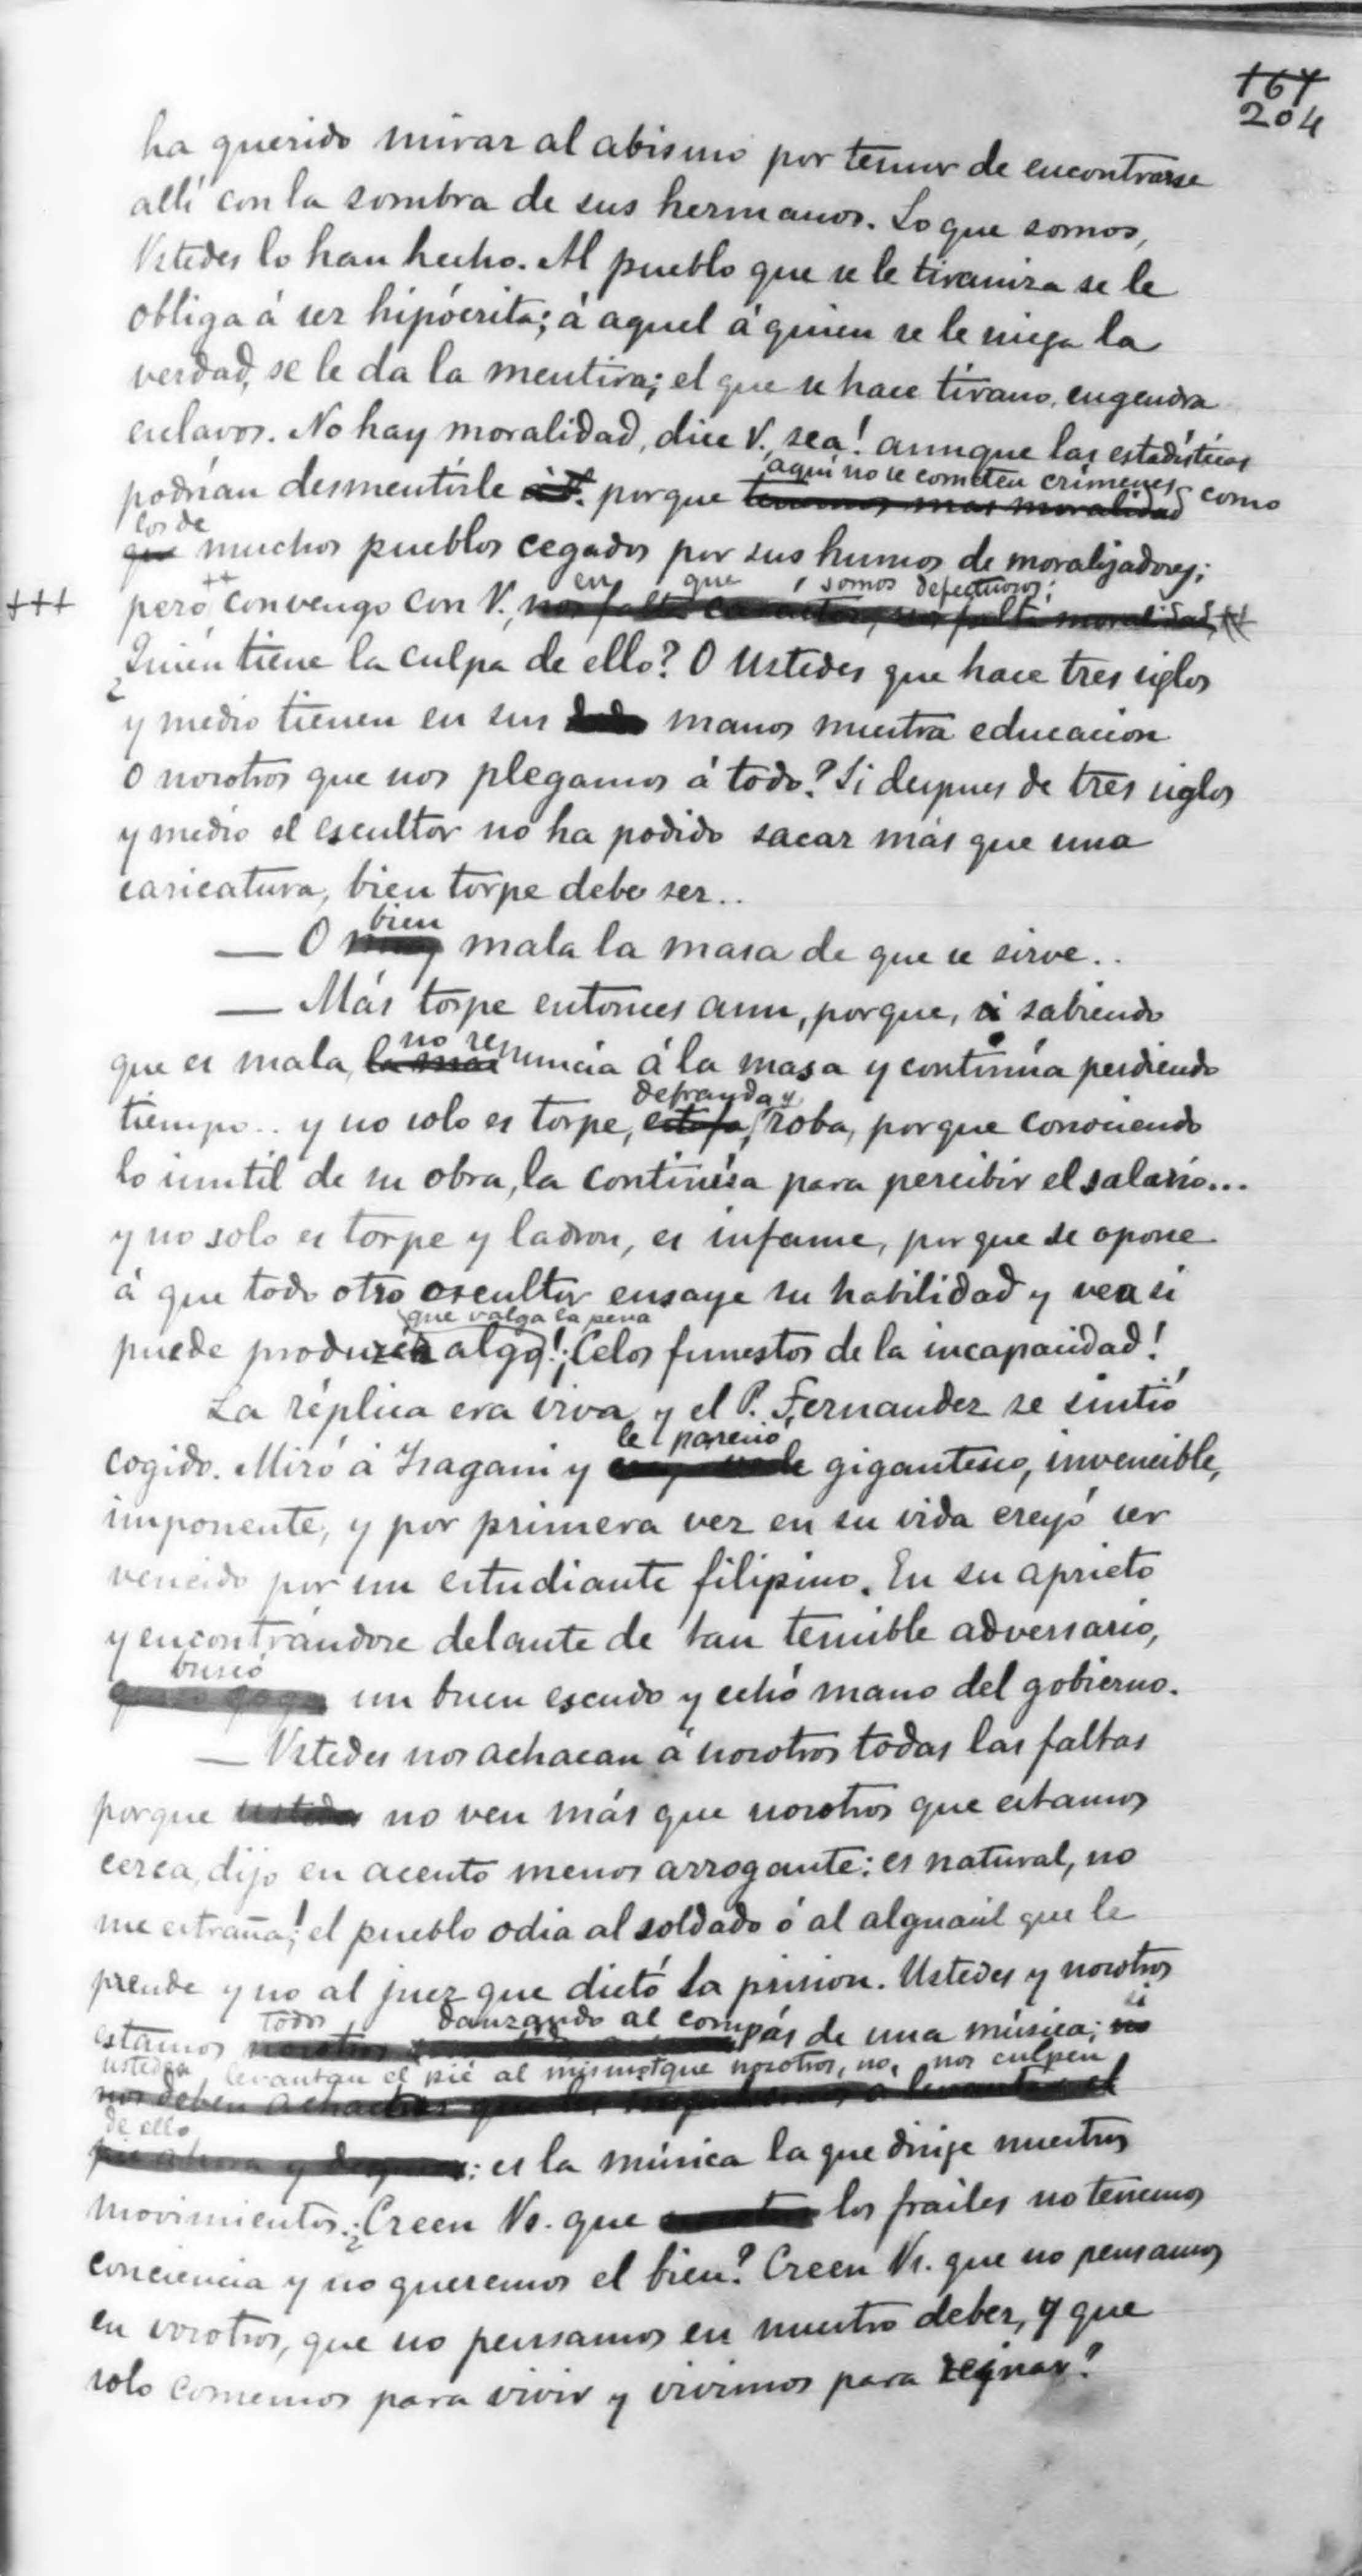 167
204
ha querido mirar al abismo por temor de encontrarse
allí con la sombra de sus hermanos. Lo que somos,
Vstedes lo han hecho. Al pueblo que se le tiraniza se le
obliga á ser hipócrita; á aquel á quien se le niega la
verdad, se le da la mentira; el que se hace tirano, engendra
esclavos. No hay moralidad, dice V., sea! aunque las estadísticas
aquí no se cometen crímenes
podrían desmentirle á V. porque tenemos mas moralidad como
los de
que muchos pueblos cegados por sus humos de moralizadores;
en que somos defectuosos;
+++ pero ++ convengo con V., nos falta caracter, nos falta moralidad,
¿Quién tiene la culpa de ello? O Ustedes que hace tres siglos
y medio tienen en sus manos nuestra educacion
o nosotros que nos plegamos á todo? Si despues de tres siglos
y medio el escultor no ha podido sacar más que una
caricatura, bien torpe debe ser..
bien
— O muy mala la masa de que se sirve..
— Más torpe entonces aun, porque, si sabiendo
no re
que es mala, la mas nuncia á la masa y continúa perdiendo
defrauda y
tiempo.. y no solo es torpe, estafa, roba, porque conociendo
lo inutil de su obra, la continúa para percibir el salario...
y no solo es torpe y ladron, es infame, porque se opone
á que todo otro escultor ensaye su habilidad y vea si
que valga la pena
puede producir algo!; Celos funestos de la incapacidad!
La réplica era viva y el P. Fernandez se sintió
le pareció
cogido. Miró á Isagani y gigantesco, invencible,
imponente, y por primera vez en su vida creyó ser
vencido por un estudiante filipino. En su aprieto
y encontrándose delante de tan temible adversario,
buscó
un buen escudo y echó mano del gobierno.
— Vstedes nos achacan á nosotros todas las faltas
porque ustedes no ven más que nosotros que estamos
cerca, dijo en acento menos arrogante: es natural, no
me estraña! el pueblo odia al soldado ó al alguacil que le
prende y no al juez que dictó la prision. Ustedes y nosotros
todos danzando al com si
estamos nosotros pás de una música; no
ustedes levantan el pié al mismo t que nosotros, no nos culpen
nos deben achacar que les á levantar el
de ello
pie ahora y : es la música la que dirije nuestros
movimientos. ¿Creen Vs. que los frailes no tenemos
conciencia y no queremos el bien? Creen Vs. que no pensamos
en vosotros, que no pensamos en nuestro deber, y que
solo comemos para vivir y vivimos para reinar?